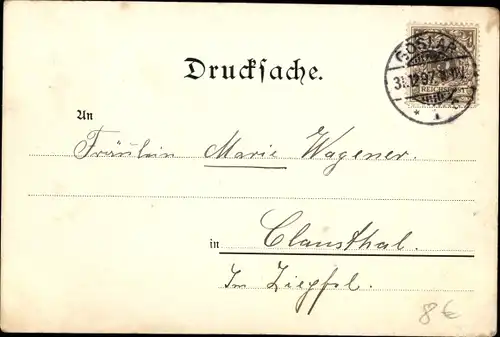 GOSLAR
31.12.97
REICHSPOST
Drucksache.
An
Fräulein Marie Wagener.
in Clausthal.
Im Ziegfel.
8€